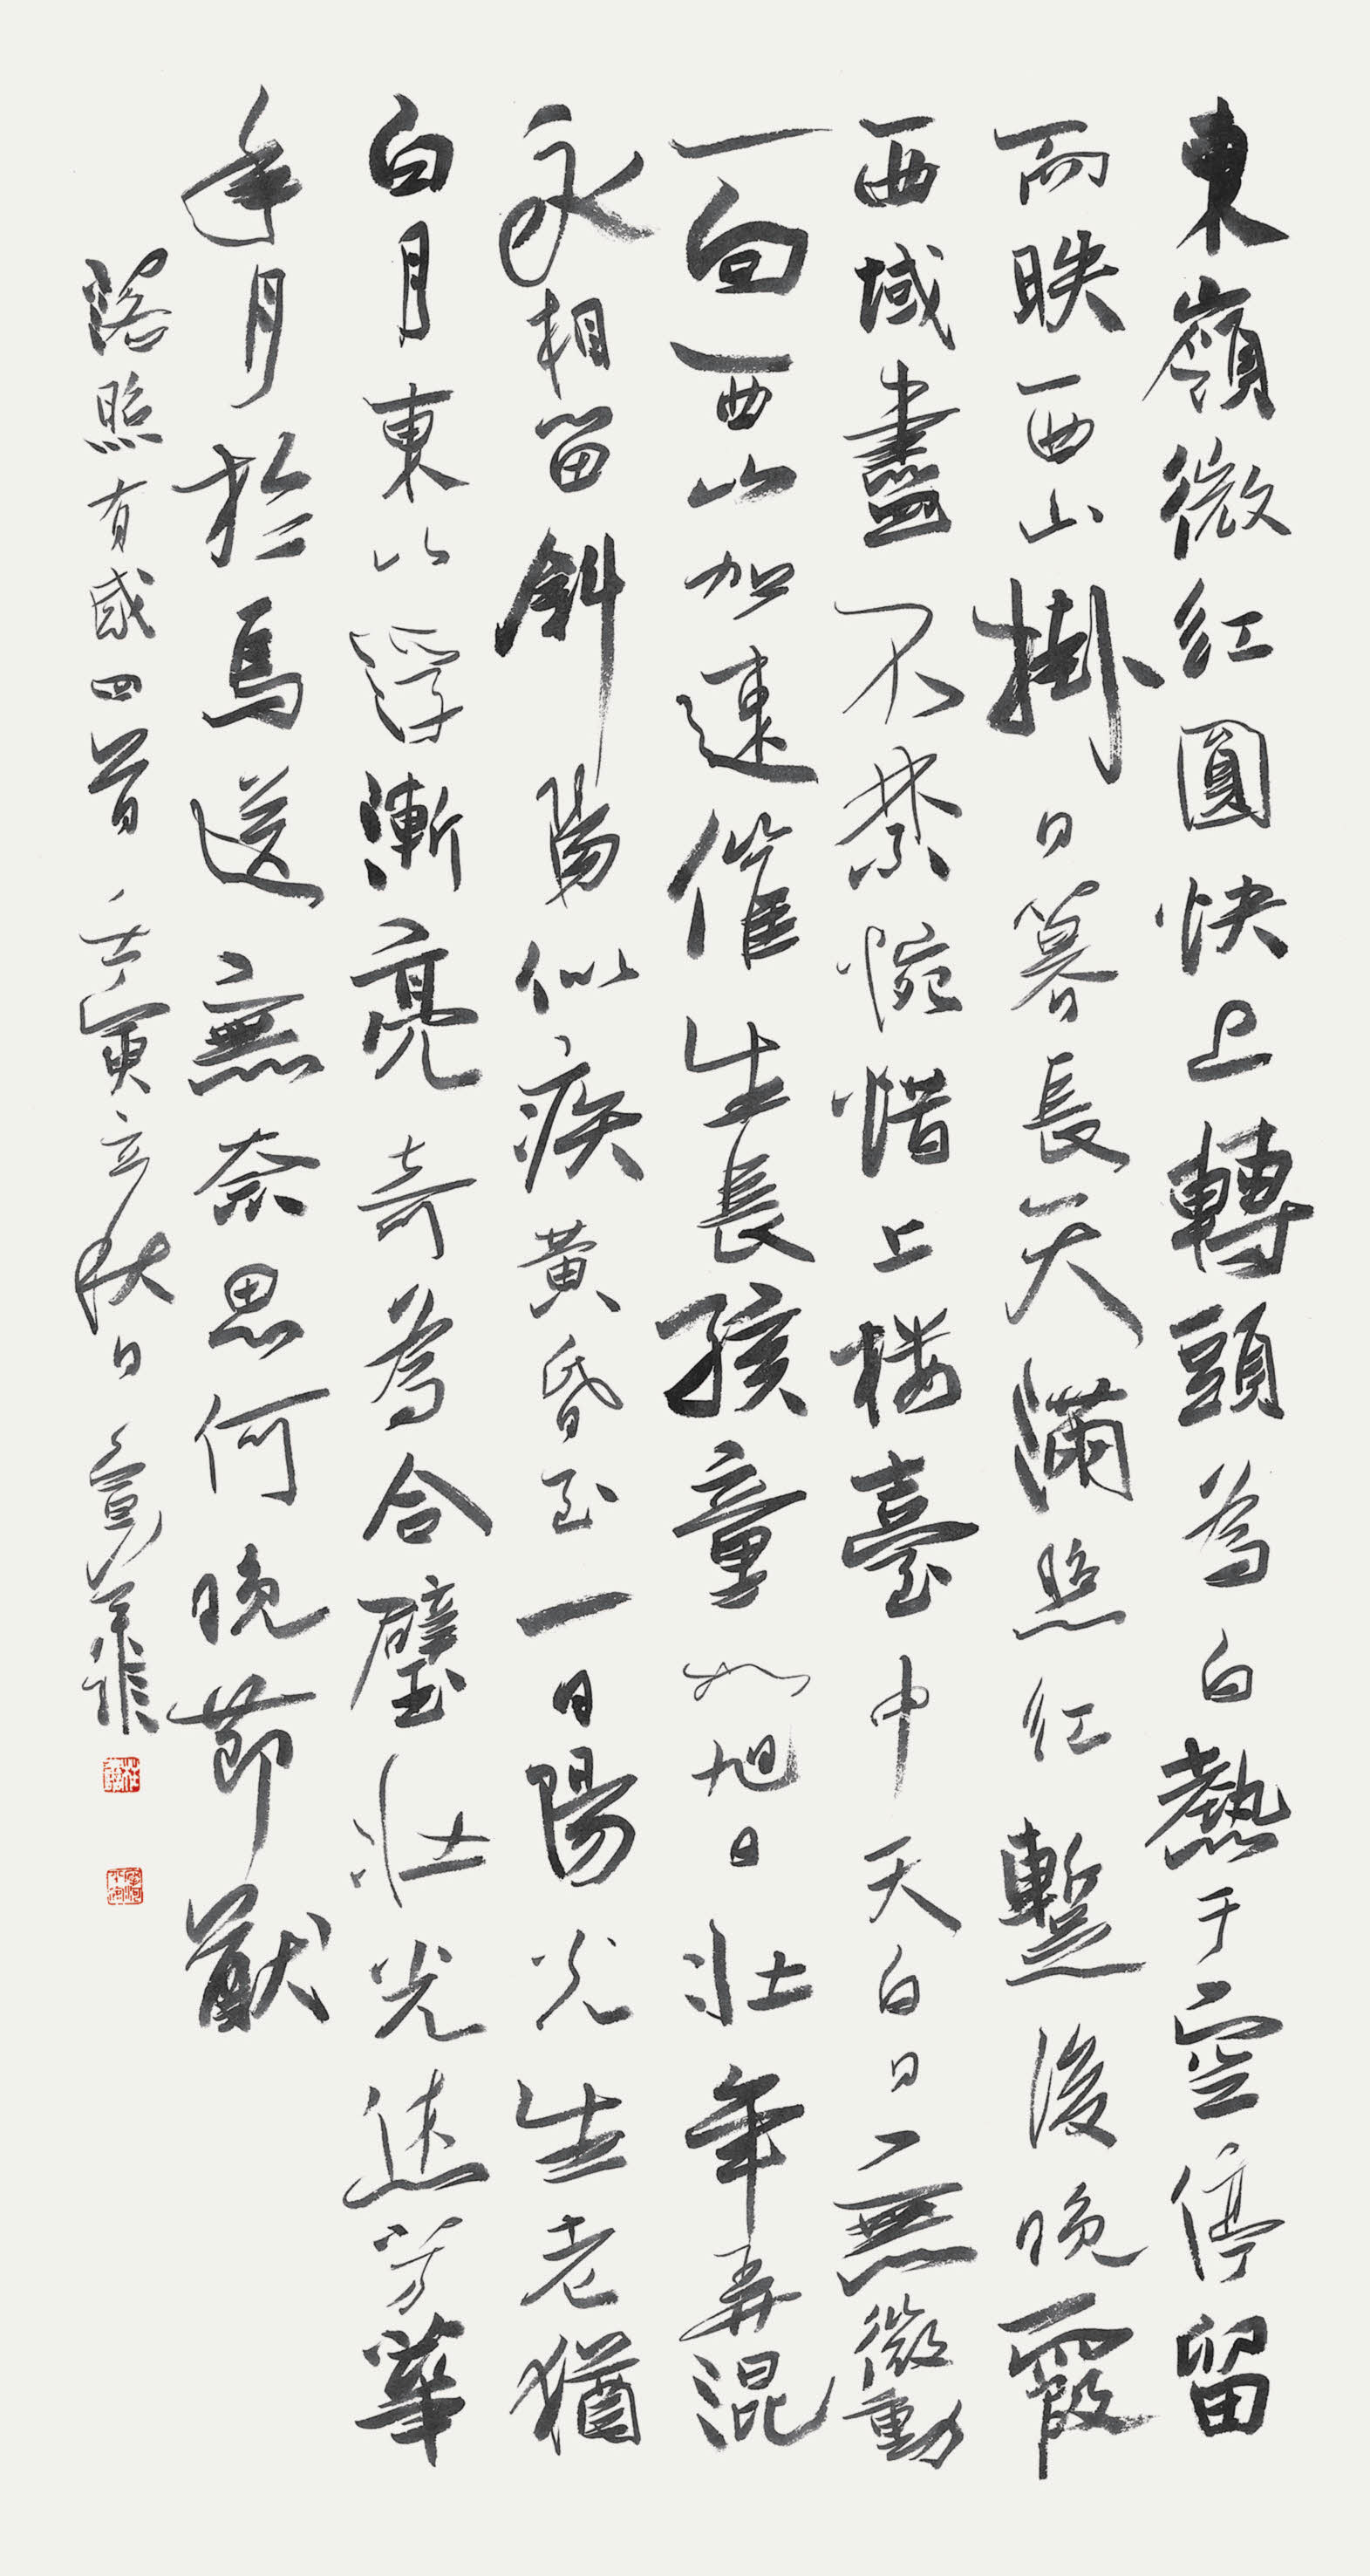 東嶺微红圓快上轉頭為白熱于空停留
而昳西山掛日暮長天滿照红蹔後晚霞
西域盡不禁惋惜上楼臺中天白日無微動
一向西山加速催生長孩童如旭日壮年弄混
永相留斜陽似疾黄昏至一日陽光生老猶
白月東山浮漸亮奇為合璧壮光逺芳華
年月於焉送無奈思何晚節猷
落照有感四首 壬寅立秋日